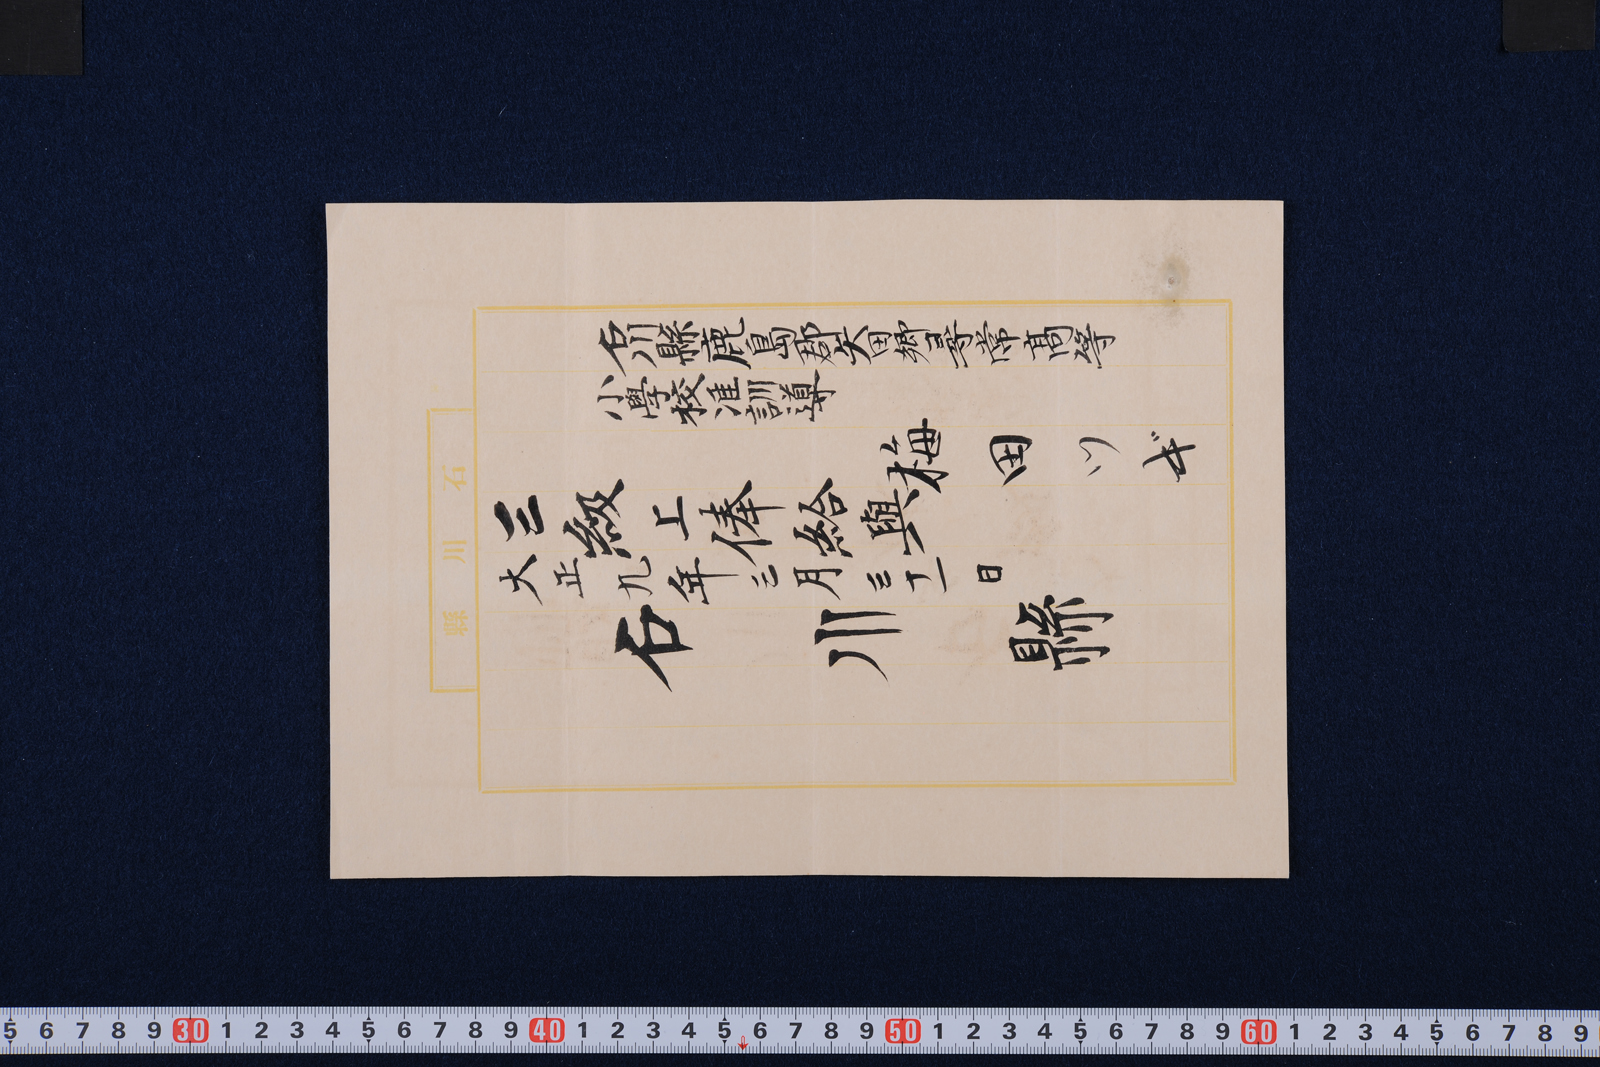 石川縣鹿島郡矢田郷尋常高等
小學校准訓導
梅田ツギ
三級上俸給與
大正九年三月三十一日
石川縣
石川縣
5 6 7 8 9 30 1 2 3 4 5 6 7 8 9 40 1 2 3 4 5 6 7 8 9 50 1 2 3 4 5 6 7 8 9 60 1 2 3 4 5 6 7 8 9